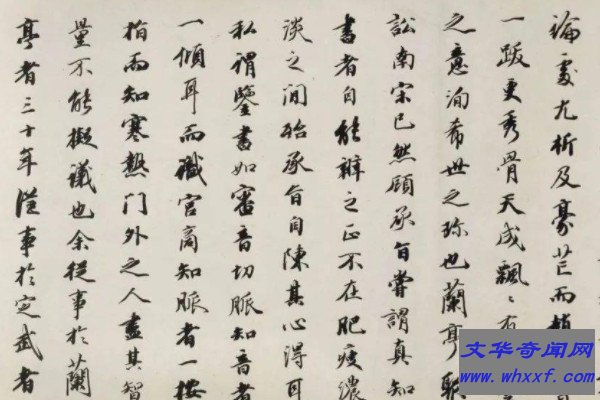 論處尤析及豪芒而趙
一跋更秀骨天成飄〻有
之意洵希世之珍也蘭亭聚
訟南宋已然顧承旨嘗謂真知
書者自能辨之正不在肥瘦濃
淡之間殆承旨自陳其心得耳
私謂鑒書如審音切脈知音者
一傾耳而識宮商知脈者一按
指而知寒熱門外之人盡其智
量不能擬議也余從事於蘭
亭者三十年從事於定武者
文华奇闻网
www.whxxf.com